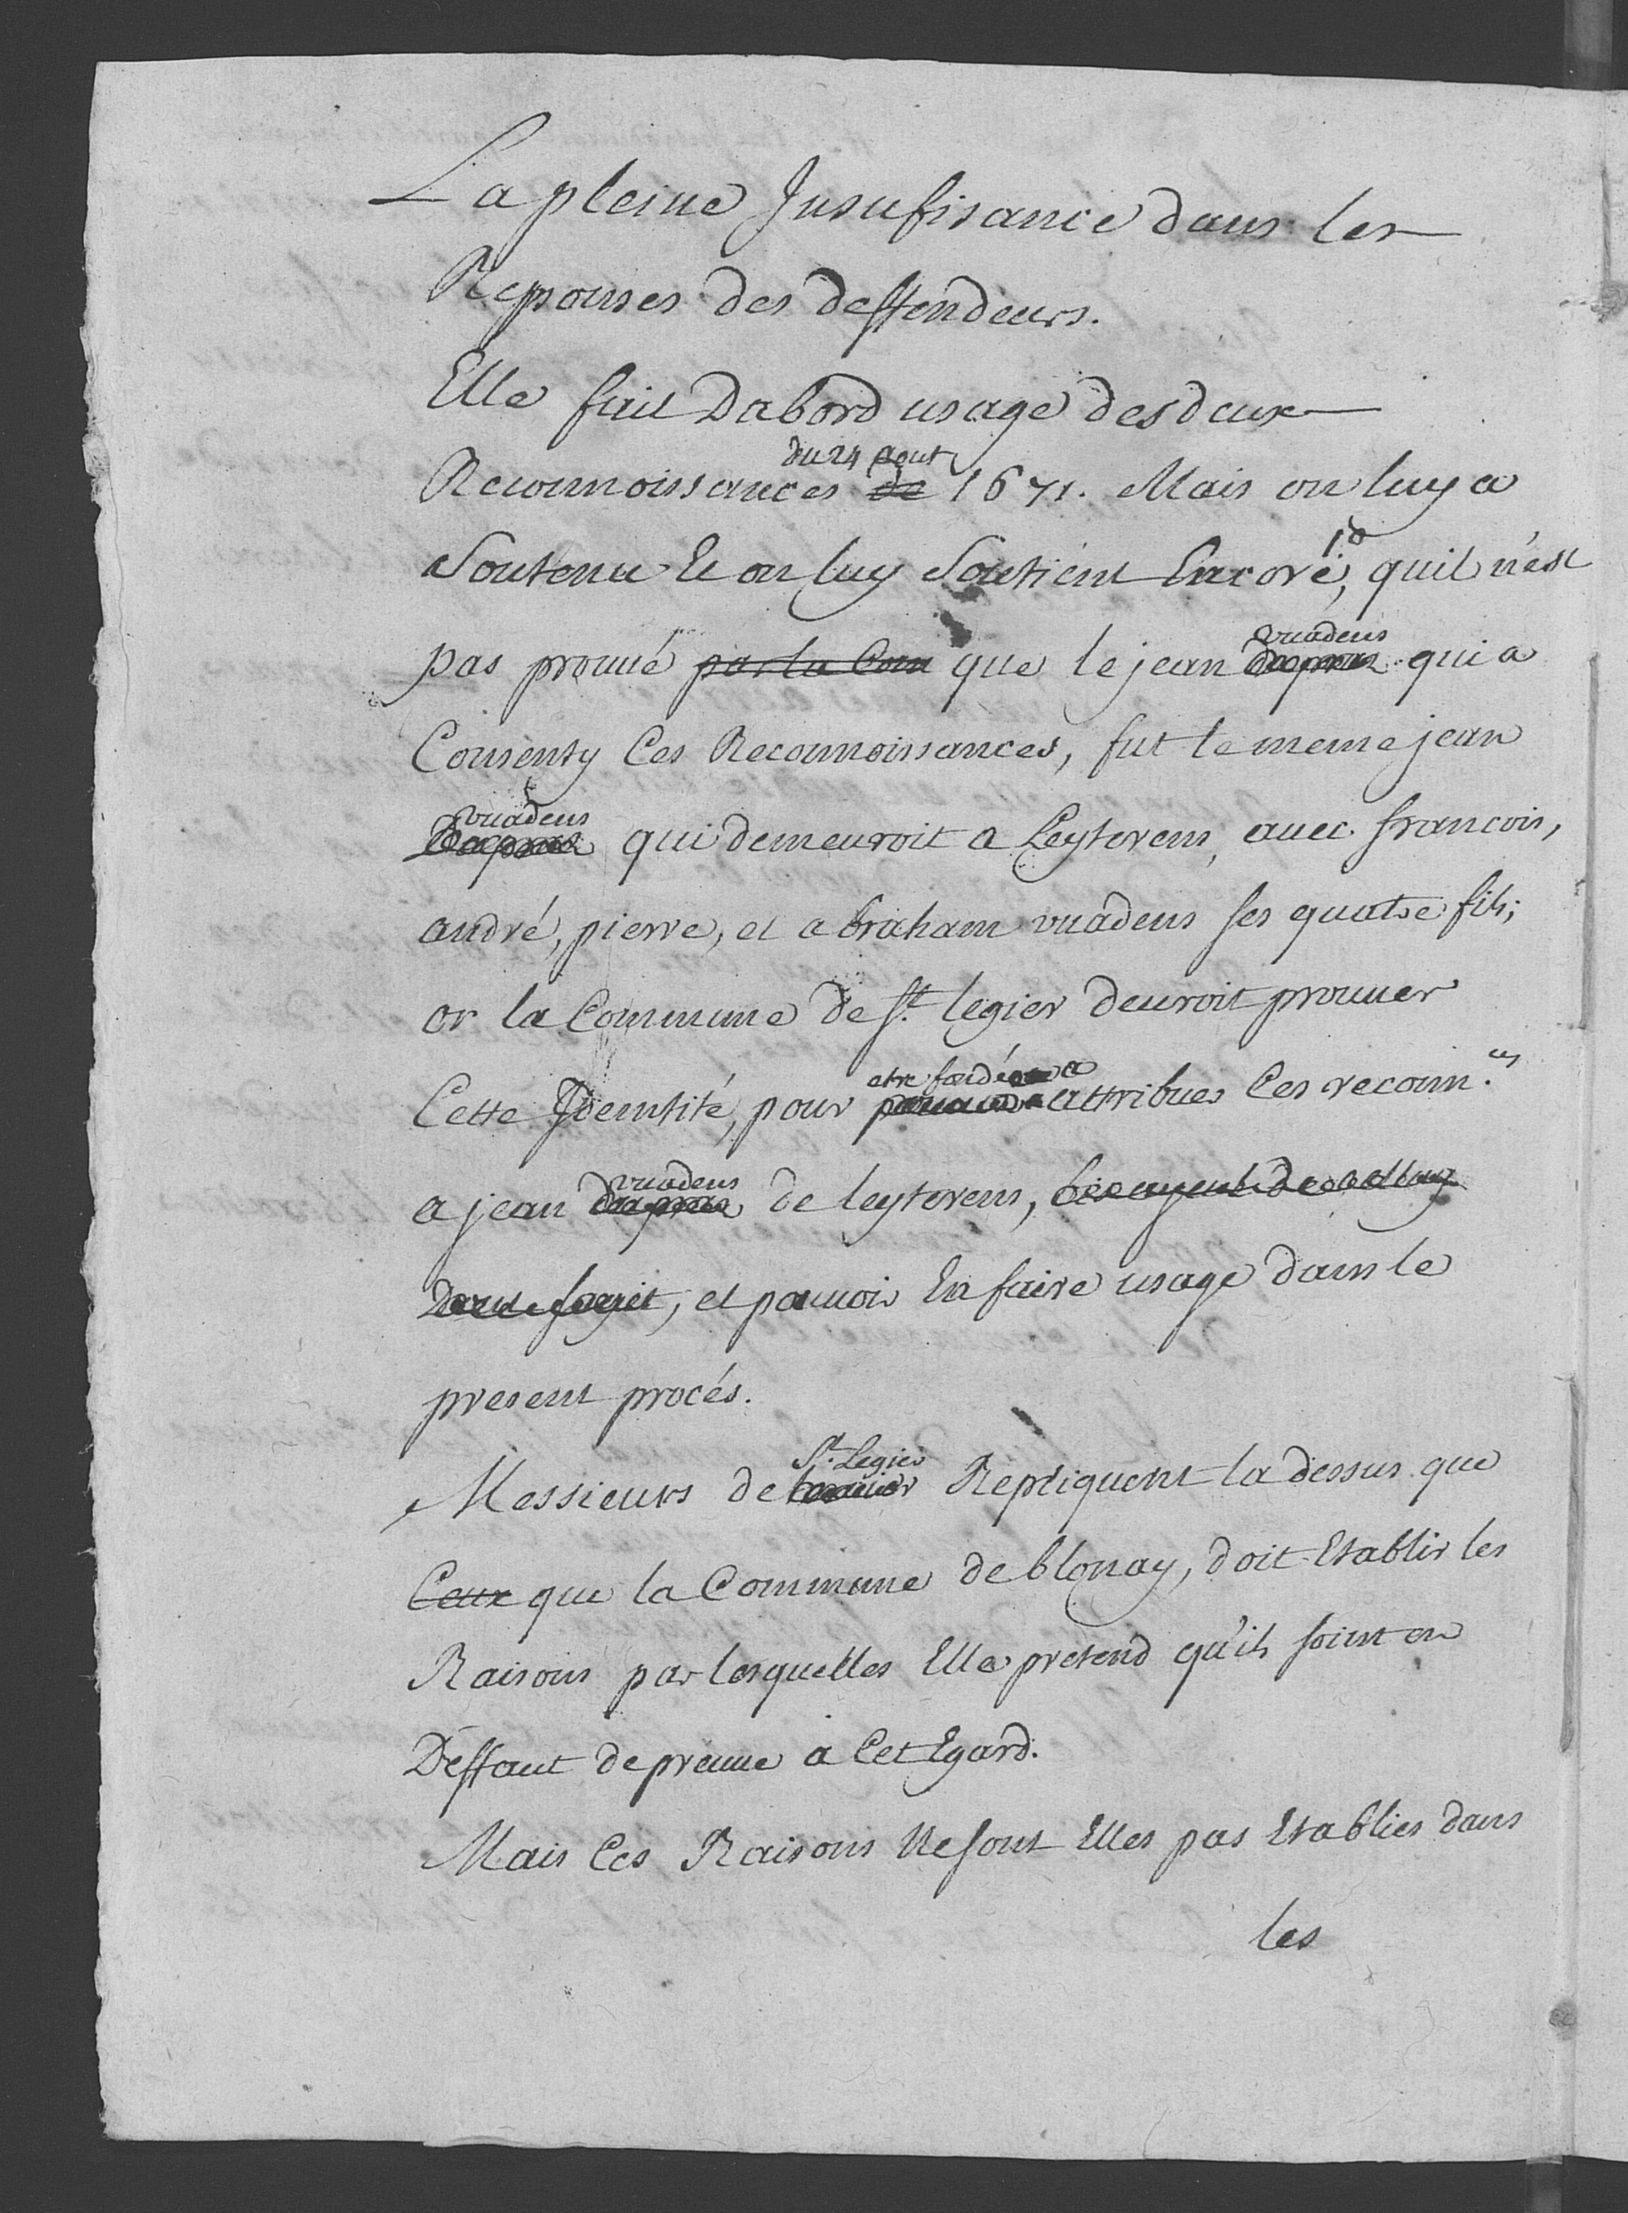 La pleine Insufisance dans les
Reponses des deffendeurs.
Elle fait Dabord usage des deux
du 24 aout
Reconnoissances de 1671. Mais on luy a
1º
Soutenu Et on luy Soutient Encore, quil n'est
vuadens
pas prouué par la Com que le jean dapraz qui a
Consenty Ces Reconnoissances, fut le meme jean
vuadens
Dapraz qui demeuroit a Leyterens, auec francois,
andré, pierre, et abraham vuadens ses quatre fils;
or la Commune de St. legier deuroit prouuer
etre fondée a
Cette Identité, pour attribuer Ces reconn.ces
vuadens
a jean dapraz de leyterens,
et pouuoir En faire usage dans le
present procés.
St. Legier
Messieurs de Repliquent la dessus que
Ceux que la Commune de blonay, doit Etablir les
Raisons par lesquelles Elle pretend qu'ils soint en
Deffaut de preuue a Cet Egard.
Mais Ces Raisons Ne sont Elles pas Etablies dans
les